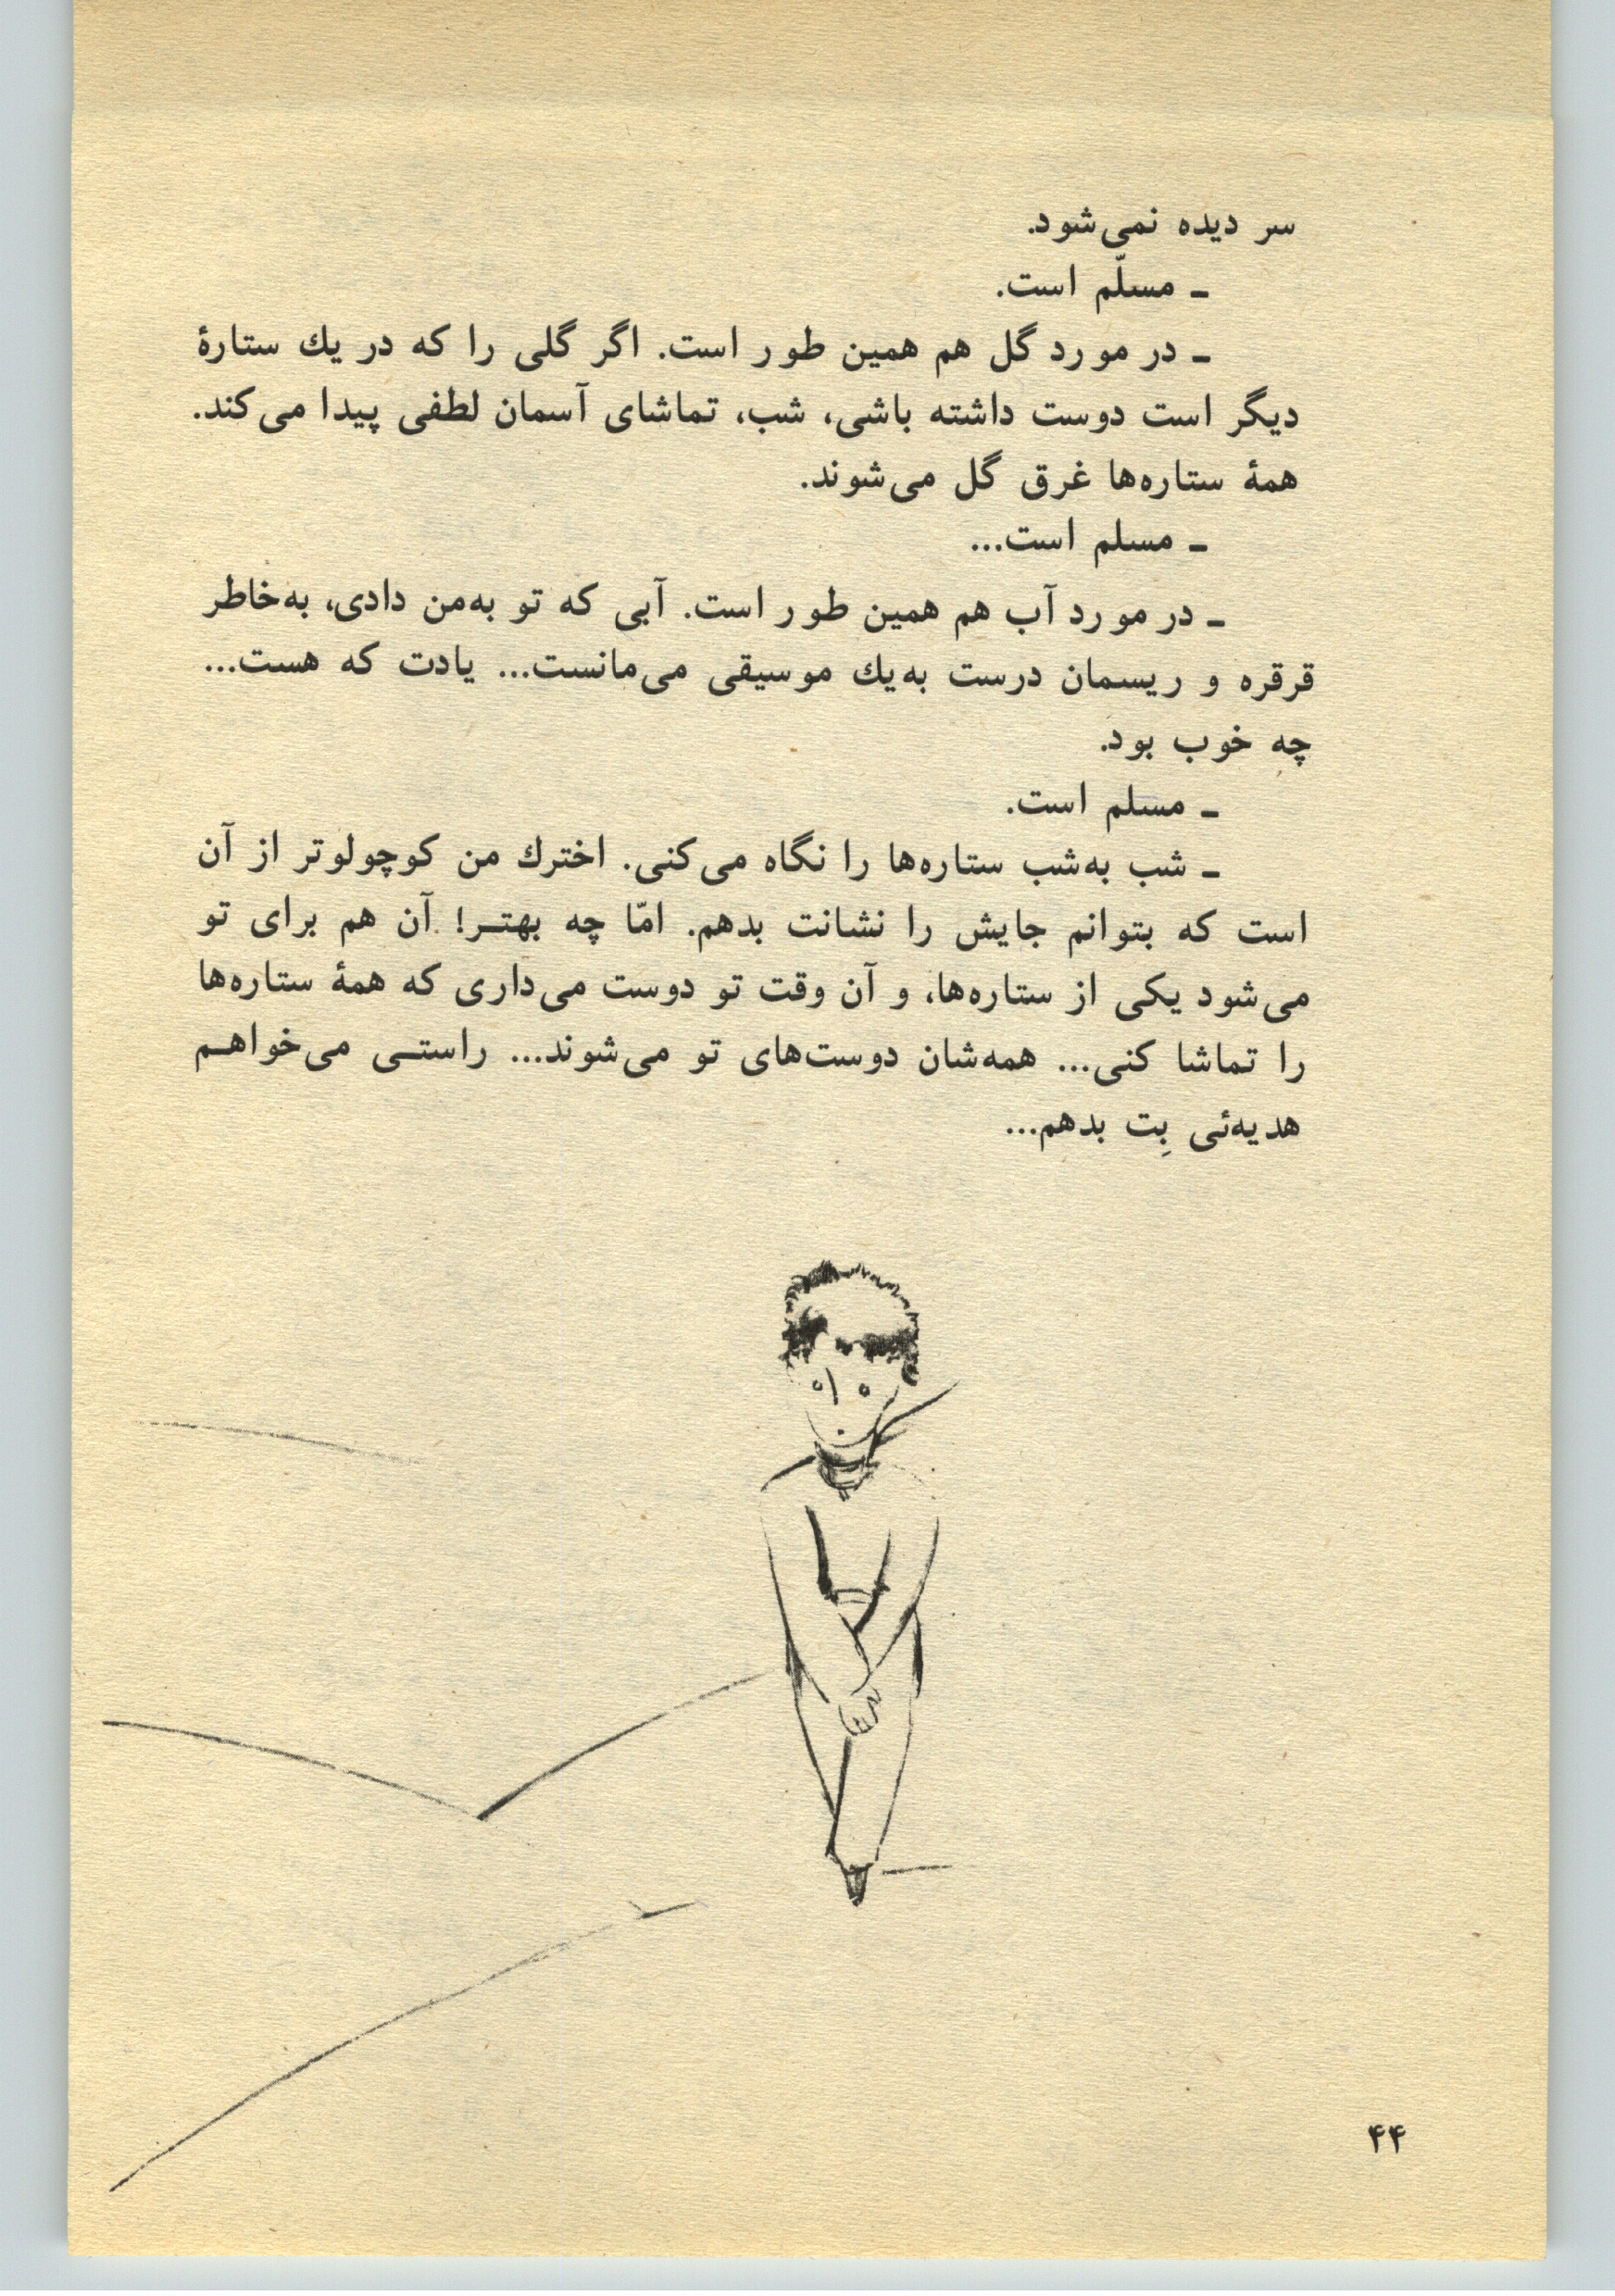 سر دیده نمی‌شود.
ـ مسلّم است.
ـ در مورد گل هم همین طور است. اگر گلی را که در یك ستارهٔ
دیگر است دوست داشته باشی، شب، تماشای آسمان لطفی پیدا می‌کند.
همهٔ ستاره‌ها غرق گل می‌شوند.
ـ مسلم است...
ـ در مورد آب هم همین طور است. آبی که تو به‌من دادی، به‌خاطر
قرقره و ریسمان درست به‌یك موسیقی می‌مانست... یادت که هست...
چه خوب بود.
ـ مسلم است.
ـ شب به‌شب ستاره‌ها را نگاه می‌کنی. اخترك من کوچولوتر از آن
است که بتوانم جایش را نشانت بدهم. امّا چه بهتـر! آن هم برای تو
می‌شود یکی از ستاره‌ها، و آن وقت تو دوست می‌داری که همهٔ ستاره‌ها
را تماشا کنی... همه‌شان دوست‌های تو می‌شوند... راستـی می‌خواهـم
هدیه‌ئی بِت بدهم...
۴۴